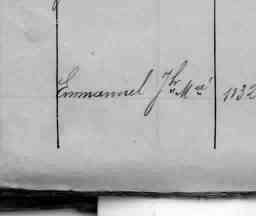 Emmanuel Jh Mce 1132